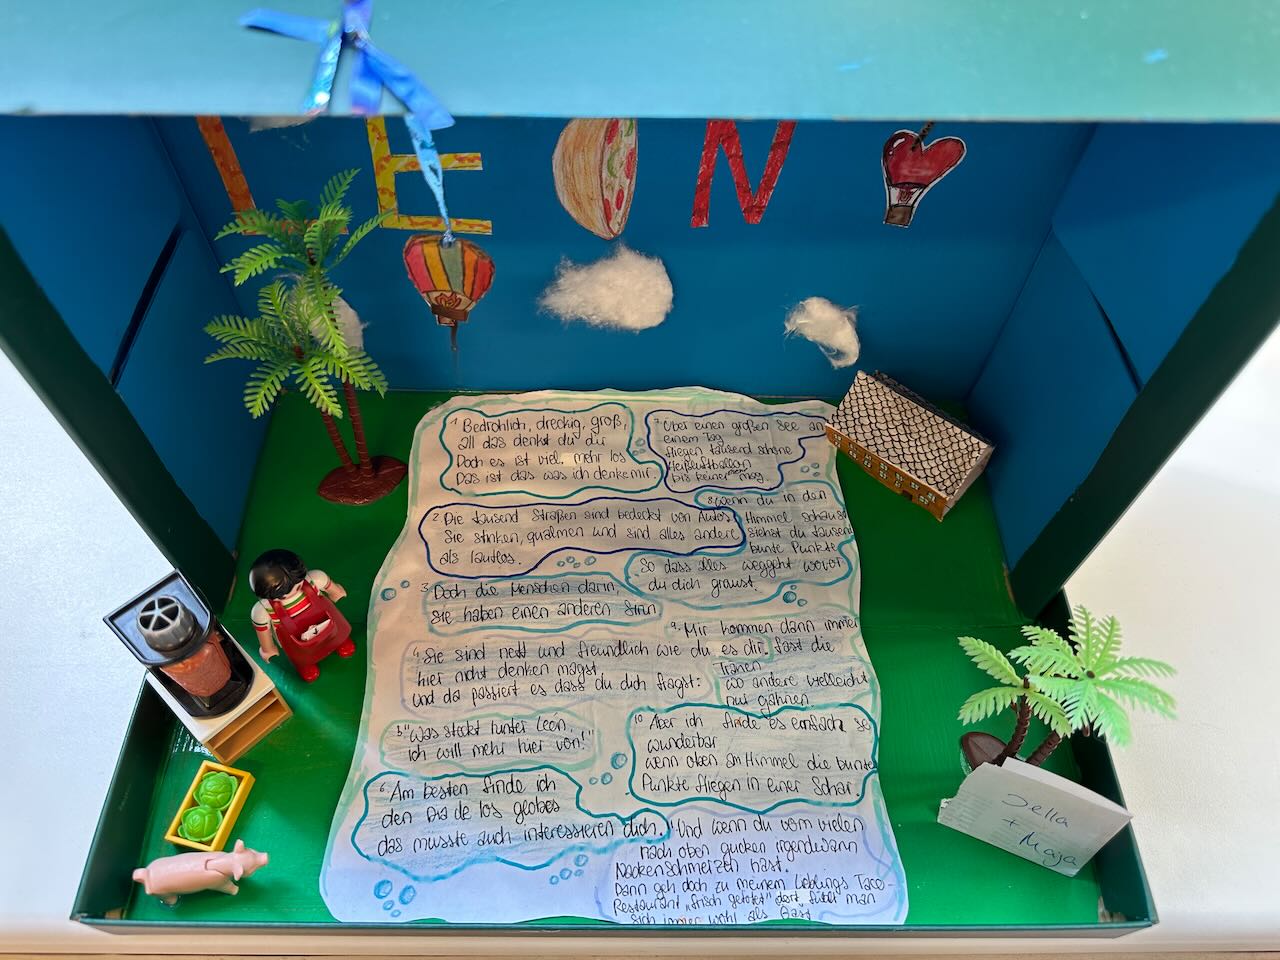 LEON
1 Bedrohlich, dreckig, groß,
all das denkst du dir
Doch es ist viel mehr los
Das ist das was ich denke mir.
2 Die tausend Straßen sind bedeckt von Autos
Sie stinken, qualmen und sind alles andere
als lautlos.
3. Doch die Menschen darin,
sie haben einen anderen Sinn
4 Sie sind nett und freundlich wie du es dir
hier nicht denken magst,
und da passiert es dass du dich fragst:
5 "Was steckt hinter Leon,
ich will mehr hier von!"
6 Am besten finde ich
den Dia de los globos
das müsste auch interessieren dich.
7 Über einen großen See an
einem Tag
fliegen tausend schöne
Heißluftballon
bis keiner mehr mag.
8. Wenn du in den
Himmel schaust
siehst du tausend
bunte Punkte
So dass alles weggeht wovor
du dich graust.
9. Mir kommen dann immer
fast die
Tränen
wo andere vielleicht
nur gähnen.
10 Aber ich finde es einfach so
wunderbar
wenn oben am Himmel die bunten
Punkte fliegen in einer Schar.
11 Und wenn du vom vielen
nach oben gucken irgendwann
Nackenschmerzen hast.
Dann geh doch zu meinem Lieblings Taco-
Restaurant „frisch getötet" dort fühlt man
sich immer wohl als Gast
Jella
+ Maja